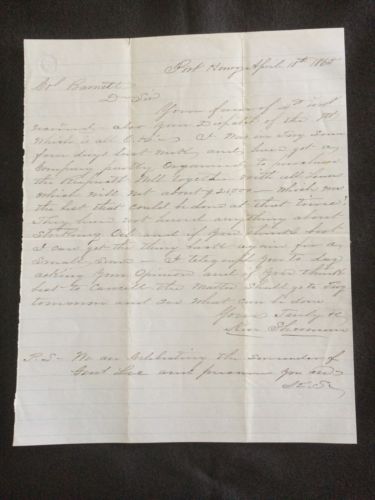 Port Henry April 10th 1865
Col Barrett
D Sir
Your favor of 4th inst
received - also your Dispatch of the
Which is all O.K. - I was in Troy
four days last week and have got a
Company partly Organized to purchase
the together with all
which will cost about $21000 - which was
the best that could be done at that time.
They have not heard anything about
and if you think best
I can get the thing again for a
Small Sum - I telegraph you to day
asking your Opinion and if you think
best to Cancell the Matter Shall go to Troy
tomorrow and see what can be done
Yours Truly &c
Sherman
P.S. We are Celebrating the surrender of
Genl Lee and presume you are